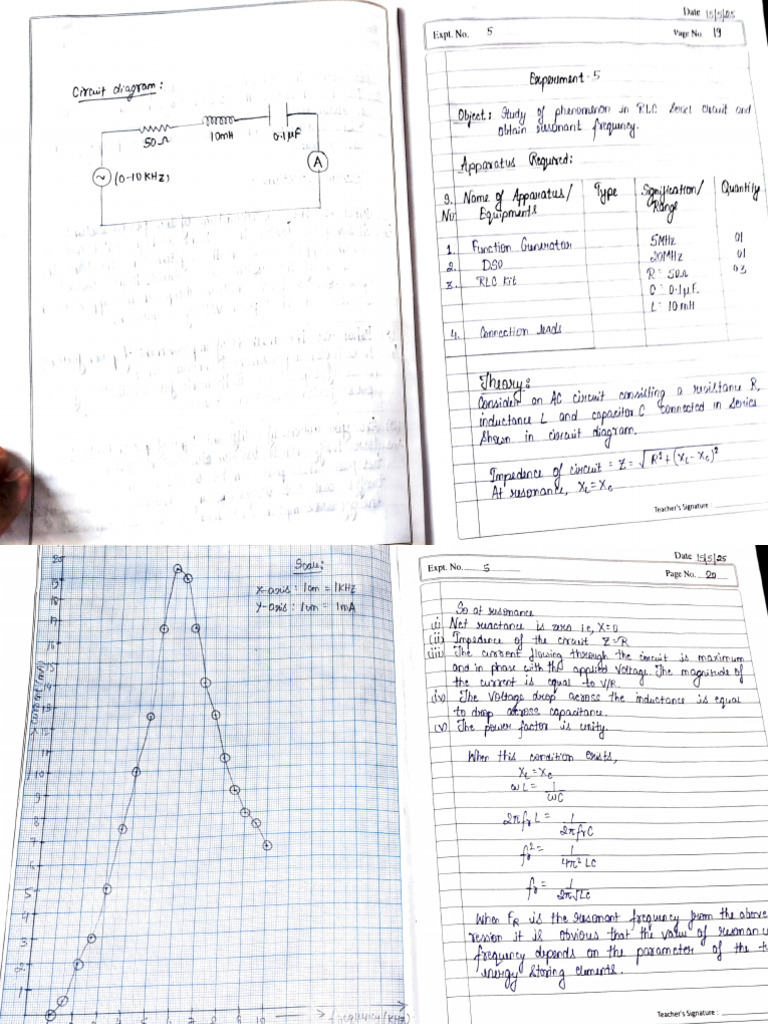 Circuit diagram:
50Ω
10mH
0.1µF
A
(0-10KHz)
Date 15/5/25
Expt. No. 5
Page No. 19
Experiment-5
Object: Study of phenomenon in RLC series circuit and
obtain resonant frequency.
Apparatus Required:
S. No. Name of Apparatus/ Equipments Type Specification/ Range Quantity
1. Function Generator 5MHz 01
2. DSO 20MHz 01
3. RLC Kit R = 50Ω 03
C = 0.1µF.
L = 10mH
4. Connection leads
Theory:
Consider an AC circuit consisting a resistance R,
inductance L and capacitor C connected in series
shown in circuit diagram.
Impedence of circuit = Z = √R²+(XL-XC)²
At resonance, XL=XC
Teacher's Signature :
Scale:
x-axis : 1cm = 1KHz
y-axis : 1cm = 1mA
20
19
18
17
16
15
14
13
12
11
10
9
8
7
5
4
3
2
1
→ frequency(KHz)
Date 15/5/25
Expt. No. 5
Page No. 20
So at resonance
(i) Net reactance is zero i.e, X=0
(ii) Impedence of the circuit Z=R
(iii) The current flowing through the circuit is maximum
and in phase with the applied voltage. The magnitude of
the current is equal to V/R.
(iv) The voltage drop across the inductance is equal
to drop across capacitance.
(v) The power factor is unity.
When this condition exists,
XL=XC
ωL= 1/ωC
2πfrL = 1/2πfrC
fr²= 1/4π²LC
fr = 1/2π√LC
When FR is the resonant frequency from the above
ression it is obvious that the value of resonan
frequency depends on the parameter of the t
energy storing elements.
Teacher's Signature :